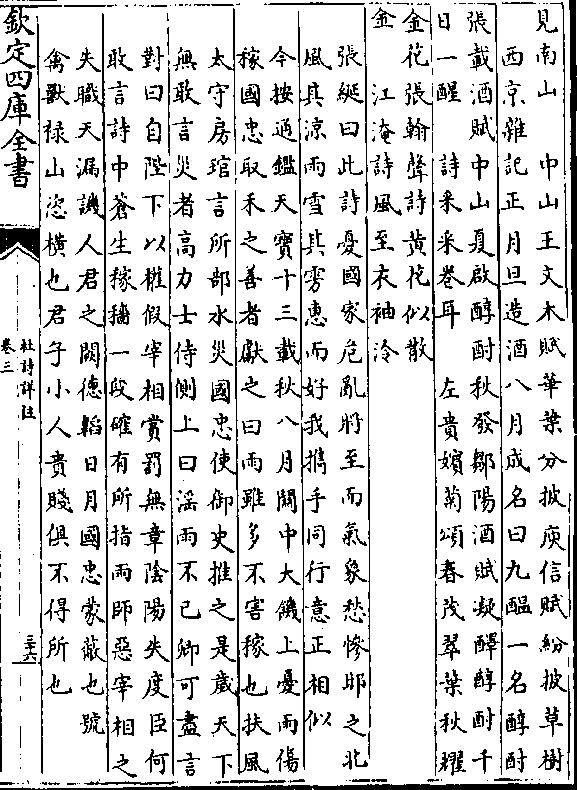 見南山　中山王文木賦華葉分披庾信賦紛披草樹
西京雜記正月旦造酒八月成名曰九醖一名醇酎
張載酒賦中山夏啟醇酎秋發鄒陽酒賦凝醳醇酎千
日一醒　詩采采卷耳　左貴嬪菊頌春茂翠葉秋耀
金花張翰聲詩黃花似散
金　江淹詩風至衣袖冷
張綖曰此詩憂國家危亂將至而氣象愁慘即之北
風其涼雨雪其雱惠而好我攜手同行意正相似
今按通鑑天寶十三載秋八月關中大饑上憂雨傷
稼國忠取禾之善者獻之曰雨雖多不害稼也扶風
太守房琯言所部水災國忠使御史推之是歲天下
無敢言災者高力士侍側上曰滛雨不已卿可盡言
對曰自陛下以權假宰相賞罰無章陰陽失度臣何
敢言詩中蒼生稼穡一段確有所指雨師惡宰相之
失職天漏譏人君之闕德韜日月國忠蒙蔽也號
禽獸祿山恣橫也君子小人貴賤俱不得所也
欽定四庫全書
杜詩詳註
卷三
三十六